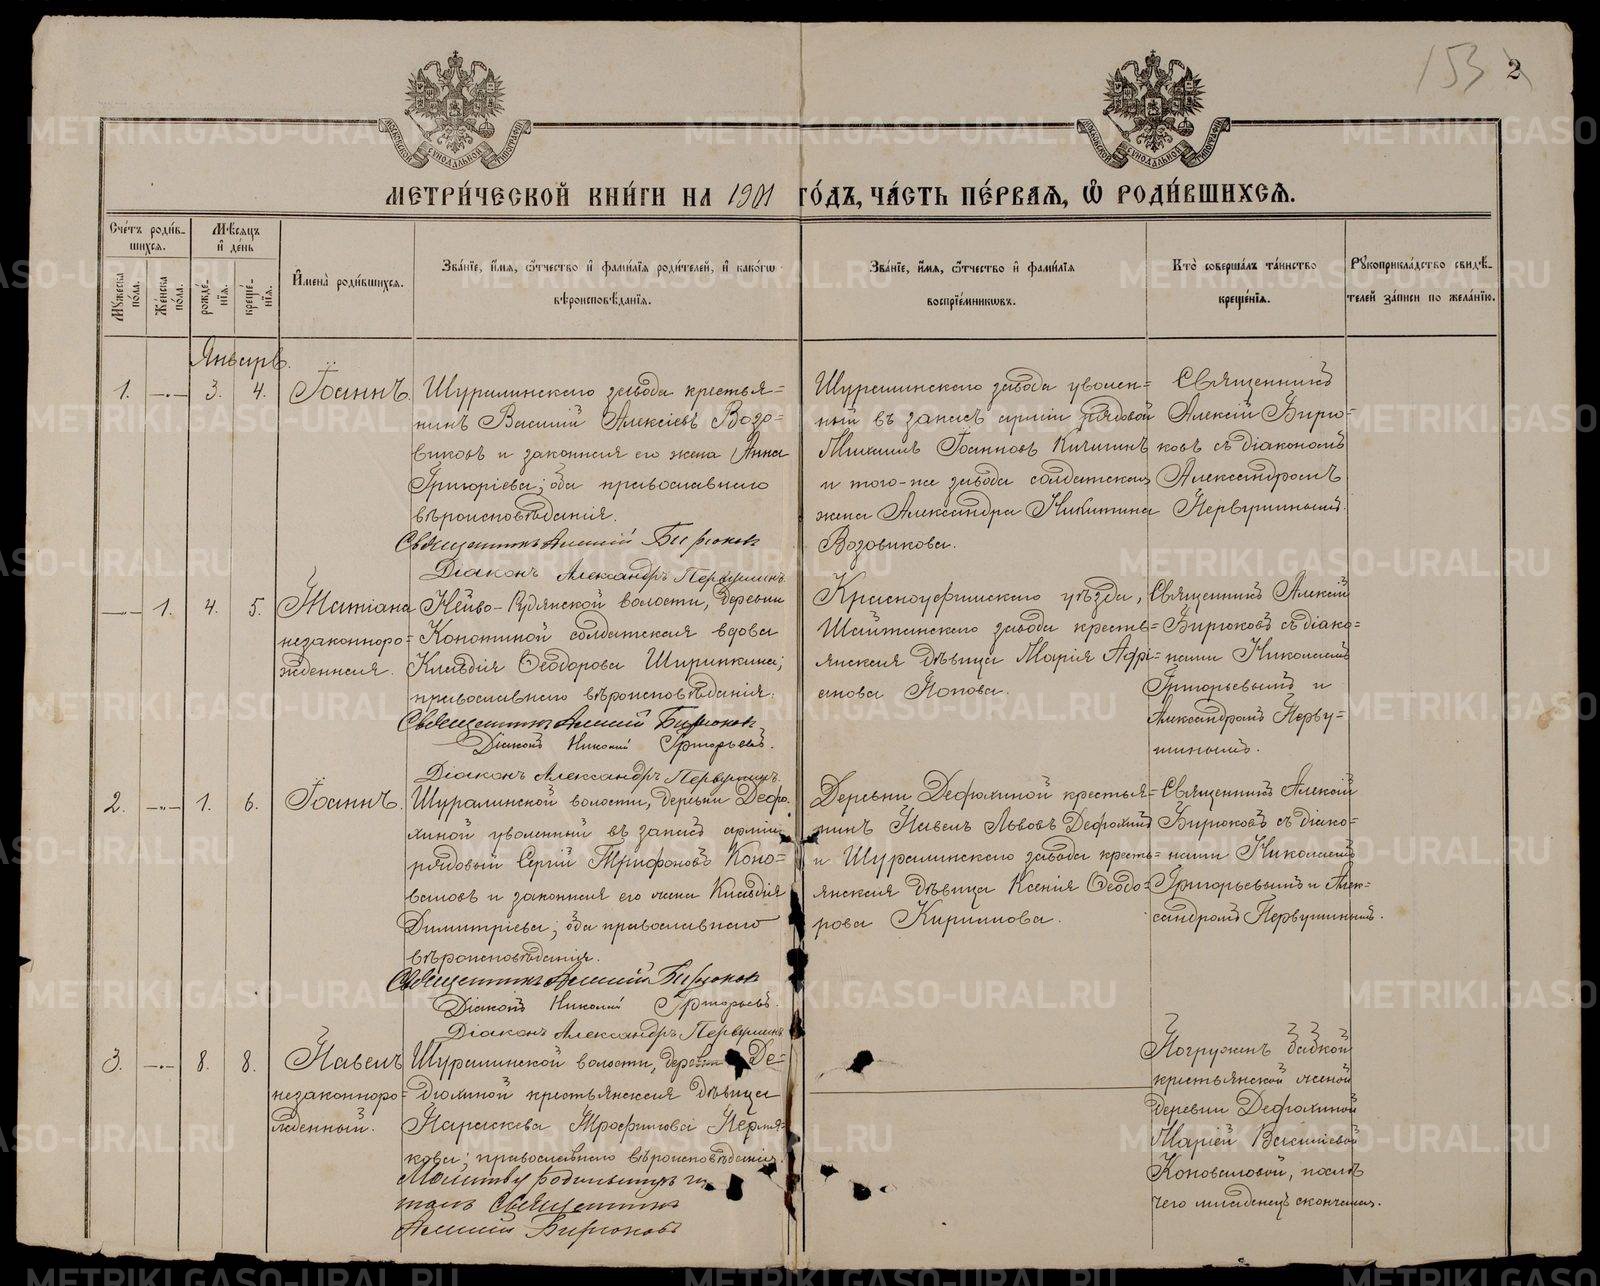 153 2
МЕТРИ́ЧЕСКОЙ КНИ́ГИ НА 1901 ГО́ДЪ, ЧА́СТЬ ПЕ́РВАЯ, Ѽ РОДИ́ВШИХСЯ.
Сче́тъ роди́в-
шихся.
Мѣ́сяцъ
и҆ де́нь
Му́жеска по́ла.
Же́нска по́ла.
рожде́-нїя.
креще́-нїя.
И҆мена̀ роди́вшихся.
Зва́нїе, и҆́мя, ѻ҆́тчество и҆ фами́лїя роди́телей, и҆ како́гѡ
вѣроисповѣ́данїя.
Зва́нїе, и҆́мя, ѻ҆́тчество и҆ фами́лїя
воспрїе́мниковъ.
Кто̀ соверша́лъ та́инство
креще́нїя.
Рꙋкоприкла́дство свидѣ́-
телей за́писи по жела́нїю.
Январь.
1. —·— 3. 4. Іоаннъ.
Шуралинскаго завода крестья=
нинъ Василій Алексіевъ Возо=
виковъ и законная его жена Анна
Григоріева; оба православнаго
вѣроисповѣданія.
Священникъ Алексій Бирюковъ
Діаконъ Александръ Первушинъ
Шуралинскаго завода уволен=
ный въ запасъ арміи рядовой
Михаилъ Іоанновъ Кичигинъ
и того-же завода солдатская
жена Александра Никитина
Возовикова.
Священникъ
Алексій Бирю-
ковъ съ діакономъ
Александромъ
Первушинымъ.
—·— 1. 4. 5. Татіана
незаконноро=
жденная.
Нейво-Рудянской волости, деревни
Конотиной солдатская вдова
Клавдія Ѳеодорова Ширинкина;
православнаго вѣроисповѣданія.
Священникъ Алексій Бирюковъ
Діаконъ Николай Григорьевъ.
Діаконъ Александръ Первушинъ.
Красноуфимскаго уѣзда,
Шайтанскаго завода кресть=
янская дѣвица Марія Афа=
анова Попова.
Священникъ Алексій
Бирюковъ съ діако-
нами Николаемъ
Григорьевымъ и
Александромъ Перву=
шинымъ.
2. —·— 1. 6. Іоаннъ.
Шуралинской волости, деревни Дедю-
хиной уволенный въ запасъ арміи
рядовый Сергій Трифоновъ Коно=
валовъ и законная его жена Клавдія
Димитріева; оба православнаго
вѣроисповѣданія.
Священникъ Алексій Бирюковъ
Діаконъ Николай Григорьевъ.
Діаконъ Александръ Первушинъ
Деревни Дедюхиной крестья=
нинъ Павелъ Львовъ Дедюхинъ
и Шуралинскаго завода кресть=
янская дѣвица Ксенія Ѳеодо-
рова Кириллова.
Священникъ Алексій
Бирюковъ съ діако-
нами Николаемъ
Григорьевымъ и Алек-
сандромъ Первушинымъ.
3. —·— 8. 8. Павелъ
незаконноро=
жденный.
Шуралинской волости, деревни Де=
дюхиной крестьянская дѣвица
Параскева Трофимова Пермя=
кова; православнаго вѣроисповѣданія.
Молитву родильницѣ чи
талъ Священникъ
Алексій Бирюковъ
Погруженъ бабкой
крестьянской женой
деревни Дедюхиной
Маріей Васильевой
Коноваловой, послѣ
чего младенецъ скончался.
METRIKI.GASO-URAL.RU